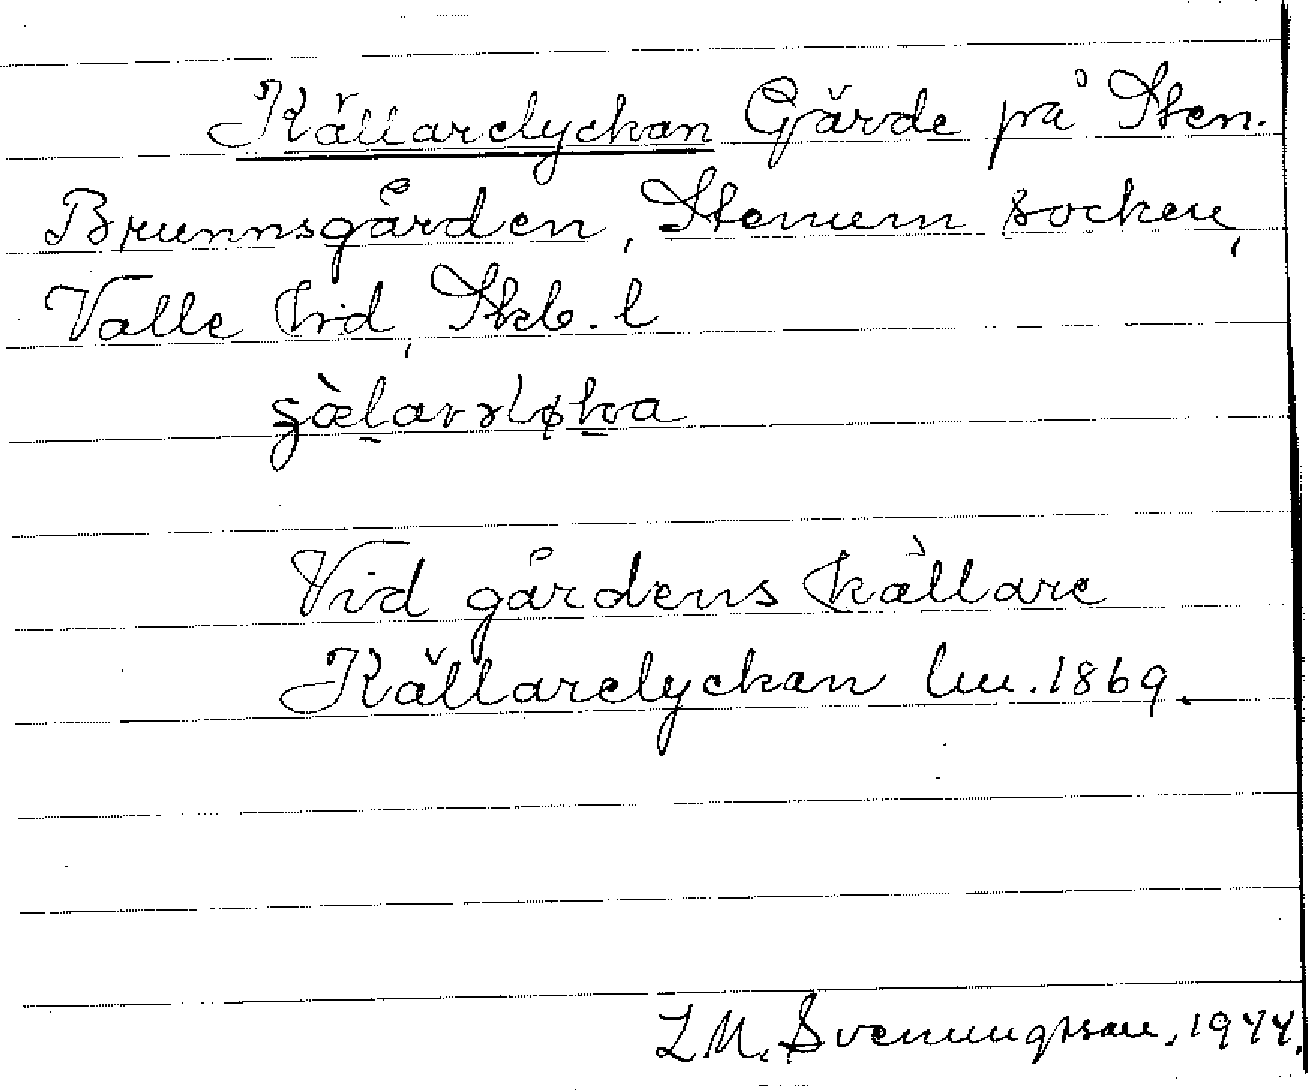 Källarelyckan Gärde på Sten.
Brunnsgården, Stenum socken,
Valle hd, Skb. l
Vid gårdens källare
Källarelyckan lm. 1869.
L M. Svenungsson, 1944.